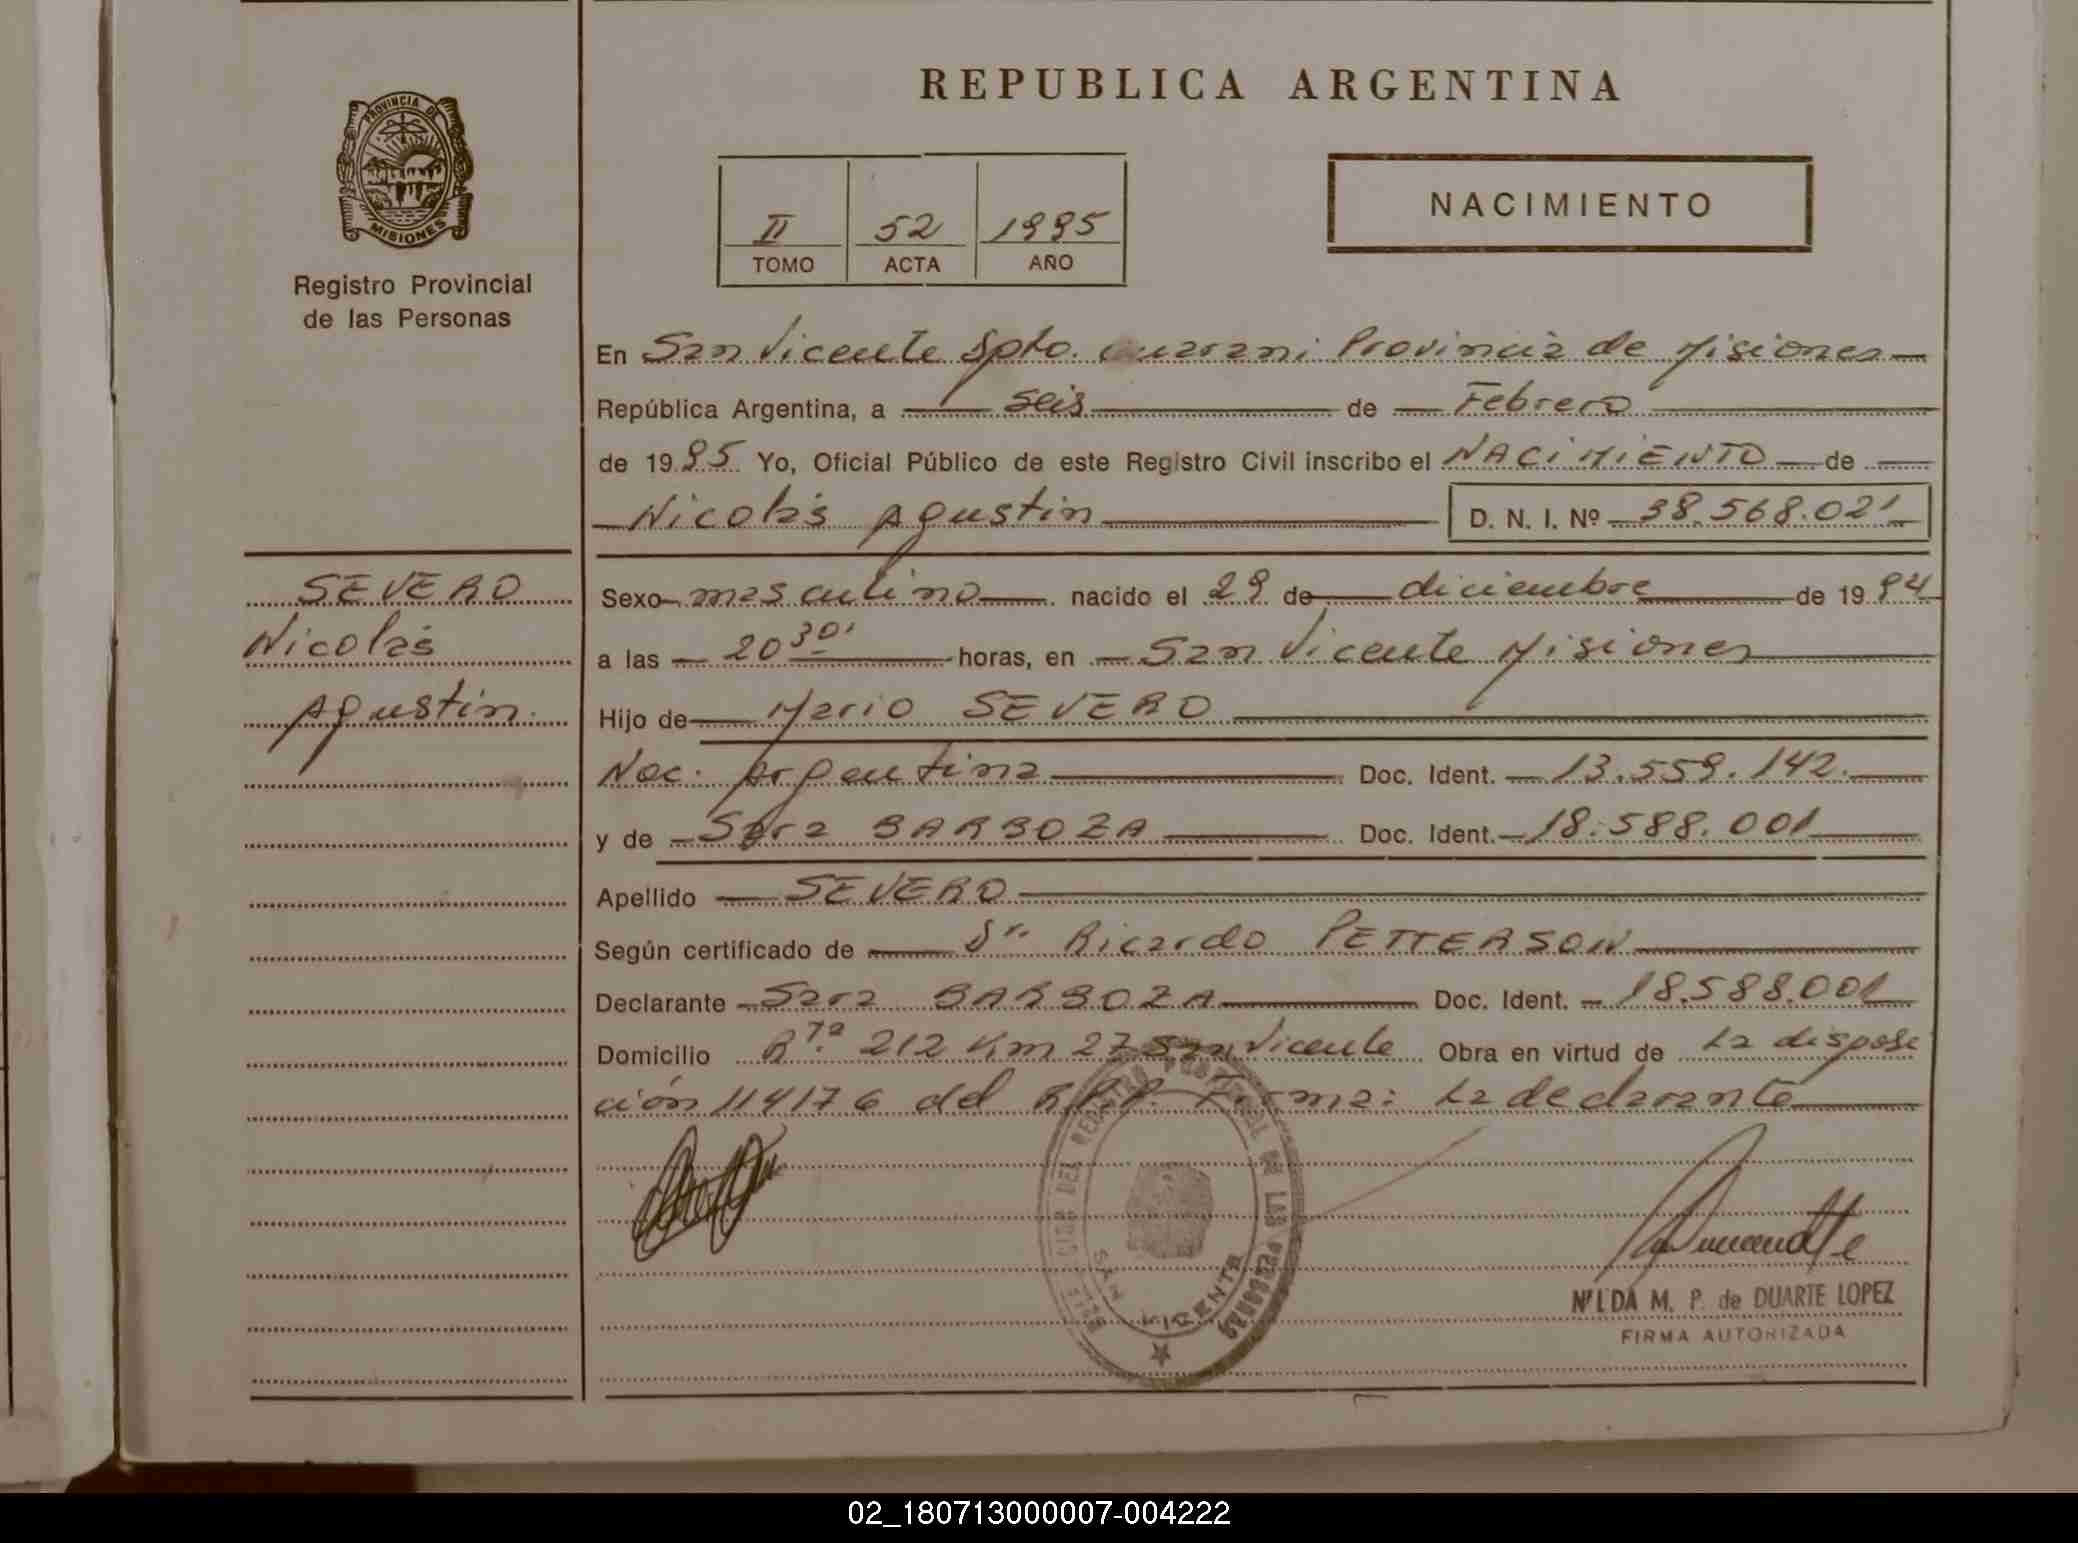 REPUBLICA ARGENTINA
PROVINCIA DE
MISIONES
Registro Provincial
de las Personas
II 52 1995
TOMO ACTA AÑO
NACIMIENTO
En San Vicente Dpto. Guarani Provincia de Misiones
República Argentina, a seis de Febrero
de 1995 Yo, Oficial Público de este Registro Civil inscribo el NACIMIENTO de
Nicolás Agustin D. N. I. Nº 38.568.021
SEVERO
Nicolás
Agustin.
Sexo masculino nacido el 29 de diciembre de 1994
a las 20 30' horas, en San Vicente Misiones
Hijo de Mario SEVERO
Nac. Argentina Doc. Ident. 13.559.142.
y de Sara BARBOZA Doc. Ident. 18.588.001
Apellido SEVERO
Según certificado de Dr. Ricardo PETTERSON
Declarante Sara BARBOZA Doc. Ident. 18.588.001
Domicilio Rta. 212 Km 27 San Vicente Obra en virtud de la disposi
ción 114176 del R.P.P. Firma: La declarante
DEL REGISTRO PROVINCIAL DE LAS PERSONAS
SAN VICENTE
NILDA M. P. de DUARTE LOPEZ
FIRMA AUTORIZADA
02_180713000007-004222